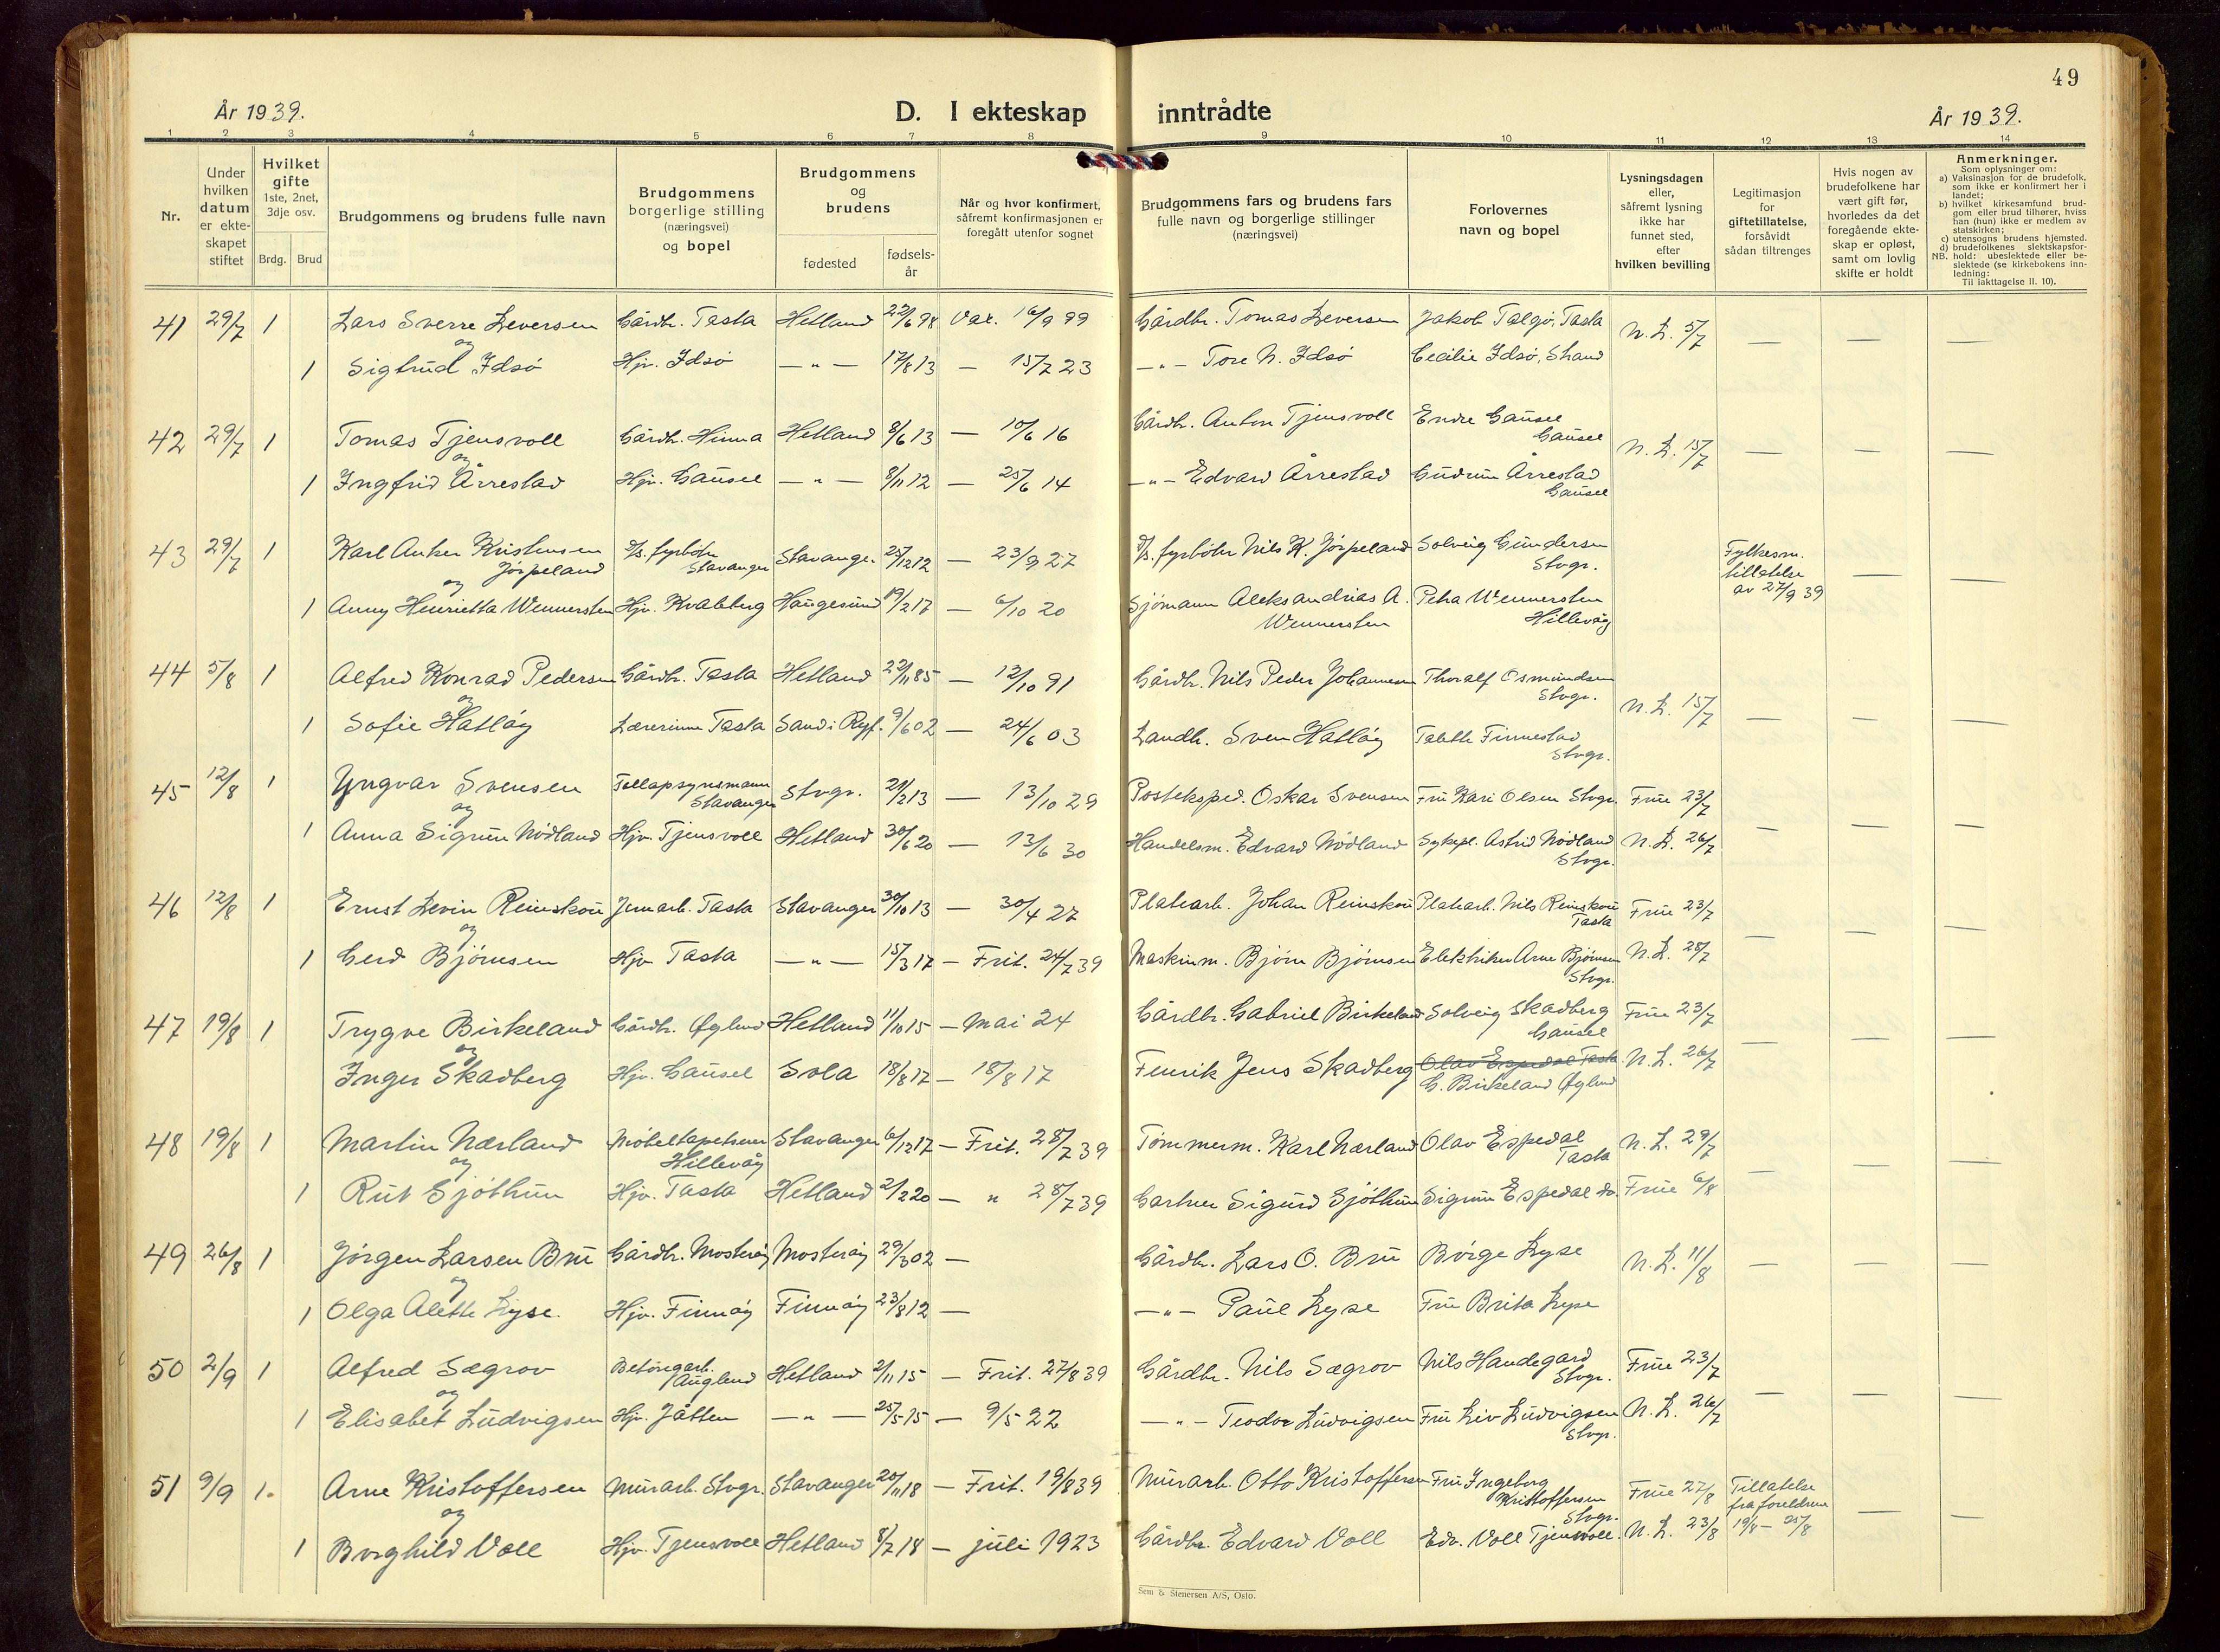 49
År 1939.
D. I ekteskap inntrådte
År 1939.
1 2 3 4 5 6 7 8 9 10 11 12 13 14
Nr.
Under hvilken datum er ekteskapet stiftet
Hvilket gifte 1ste, 2net, 3dje osv.
Brdg. Brud
Brudgommens og brudens fulle navn
Brudgommens borgerlige stilling (næringsvei) og bopel
Brudgommens og brudens
fødested
fødselsår
Når og hvor konfirmert, såfremt konfirmasjonen er foregått utenfor sognet
Brudgommens fars og brudens fars fulle navn og borgerlige stillinger (næringsvei)
Forlovernes navn og bopel
Lysningsdagen eller, såfremt lysning ikke har funnet sted, efter hvilken bevilling
Legitimasjon for giftetillatelse, forsåvidt sådan tiltrenges
Hvis nogen av brudefolkene har vært gift før, hvorledes da det foregående ekteskap er opløst, samt om lovlig skifte er holdt
Anmerkninger.
Som oplysninger om:
a) Vaksinasjon for de brudefolk, som ikke er konfirmert her i landet;
b) hvilket kirkesamfund brudgom eller brud tilhører, hviss han (hun) ikke er medlem av statskirken;
c) utensogns brudens hjemsted.
d) brudefolkenes slektskapsforhold: ubeslektede eller beslektede (se kirkebokens innledning:
NB.
Til iakttagelse II. 10).
41 29/7 1 Lars Sverre Leversen Gårdbr. Tasta Hetland 22/6 98 Vax. 16/9 99 Gårdbr. Tomas Leversen Jakob Talgø, Tasta N.L. 5/7 — — —
og
1 Sigtrud Idsø Hjv. Idsø —"— 17/8 13 — 15/7 23 —"— Tore N. Idsø Cecilie Idsø, Strand
42 29/7 1 Tomas Tjensvoll Gårdbr. Hinna Hetland 8/6 13 — 10/6 16 Gårdbr. Anton Tjensvoll Endre Gausel Gausel N.L. 15/7 — — —
og
1 Ingfrid Årrestad Hjv. Gausel —"— 8/11 12 — 25/6 14 —"— Edvard Årrestad Gudrun Årrestad Gausel
43 29/7 1 Karl Anker Kristensen Jørpeland D/s. fyrbøter Stavanger Stavanger 25/12 12 — 23/9 27 D/s. fyrbøter Nils K. Jørpeland Solveig Gundersen Stvgr. Fylkesm. tillatelse av 27/9 39 — —
og
1 Anny Henrietta Wennersten Hjv. Kvaleberg Haugesund 19/2 17 — 6/10 20 Sjømann Aleksandrias A. Wennersten Petra Wennersten Hillevåg
44 5/8 1 Alfred Konrad Pedersen Gårdbr. Tasta Hetland 22/11 85 — 12/10 91 Gårdbr. Nils Peder Johannesen Thoralf Osmundsen Stvgr. N.L. 15/7 — — —
og
1 Sofie Hatløy Lærerinne Tasta Sand i Ryf. 9/6 02 — 24/6 03 Landh. Sven Hatløy Tabitha Finnestad Stvgr.
45 12/8 1 Yngvar Svensen Tollopsynsmann Stavanger Stvgr. 21/2 13 — 13/10 29 Posteksped. Oskar Svensen Fru Kari Olsen Stvgr. Frue 23/7
og
1 Anna Sigrun Nødland Hjv. Tjensvoll Hetland 30/6 20 — 13/6 30 Handelsm. Edvard Nødland Sykepl. Astrid Nødland Stvgr. N.L. 26/7 — — —
46 12/8 1 Ernst Levin Reinskou Jernarb. Tasta Stavanger 30/10 13 — 30/4 27 Platearb. Johan Reinskou Platearb. Nils Reinskou Tasta Frue 23/7
og
1 Gerd Bjørnsen Hjv. Tasta —"— 15/3 17 — Frit. 24/7 39 Maskinm. Bjørn Bjørnsen Elektriker Arne Bjørnsen Stvgr. N.L. 28/7 — — —
47 19/8 1 Trygve Birkeland Gårdbr. Øglend Hetland 11/10 15 — Mai 24 Gårdbr. Gabriel Birkeland Solveig Skadberg Gausel Frue 23/7
og
Inger Skadberg Hjv. Gausel Sola 18/8 17 — 18/8 17 Fenrik Jens Skadberg Olav Espedal Tasta G. Birkeland Øglend N.L. 26/7 — — —
48 19/8 1 Martin Nærland Møbeltapetserer Hillevåg Stavanger 6/12 17 — Frit. 28/7 39 Tømmerm. Karl Nærland Olav Espedal Tasta N.L. 29/7
og
1 Rut Sjøthun Hjv. Tasta Hetland 2/2 20 — " 28/7 39 Gartner Sigurd Sjøthun Sigrun Espedal do. Frue 6/8 — — —
49 26/8 1 Jørgen Larsen Bru Gårdbr. Mosterøy Mosterøy 29/3 02 — Gårdbr. Lars O. Bru Børge Lyse N.L. 11/8 — — —
og
1 Olga Alette Lyse. Hjv. Finnøy Finnøy 23/8 12 — —"— Paul Lyse Fru Brita Lyse
50 2/9 1 Alfred Sægrov Betongarb. Auglend Hetland 2/11 15 — Frit. 27/8 39 Gårdbr. Nils Sægrov Nils Handegard Stvgr. Frue 23/7
og
1 Elisabet Ludvigsen Hjv. Jåtten —"— 25/5 15 — 9/5 22 —"— Teodor Ludvigsen Fru Liv Ludvigsen Stvgr. N.L. 26/7 — — —
51 9/9 1. Arne Kristoffersen Murarb. Stvgr. Stavanger 20/11 18 — Frit. 19/8 39 Murarb. Otto Kristoffersen Fru Ingeborg Kristoffersen Stvgr. Frue 27/8 Tillatelse fra foreldrene 19/8 – 25/8 — —
og
1 Borghild Voll Hjv. Tjensvoll Hetland 8/7 18 — juli 1923 Gårdbr. Edvard Voll Edv. Voll Tjensvoll. N.L. 23/8
Sem & Stenersen A/S, Oslo.